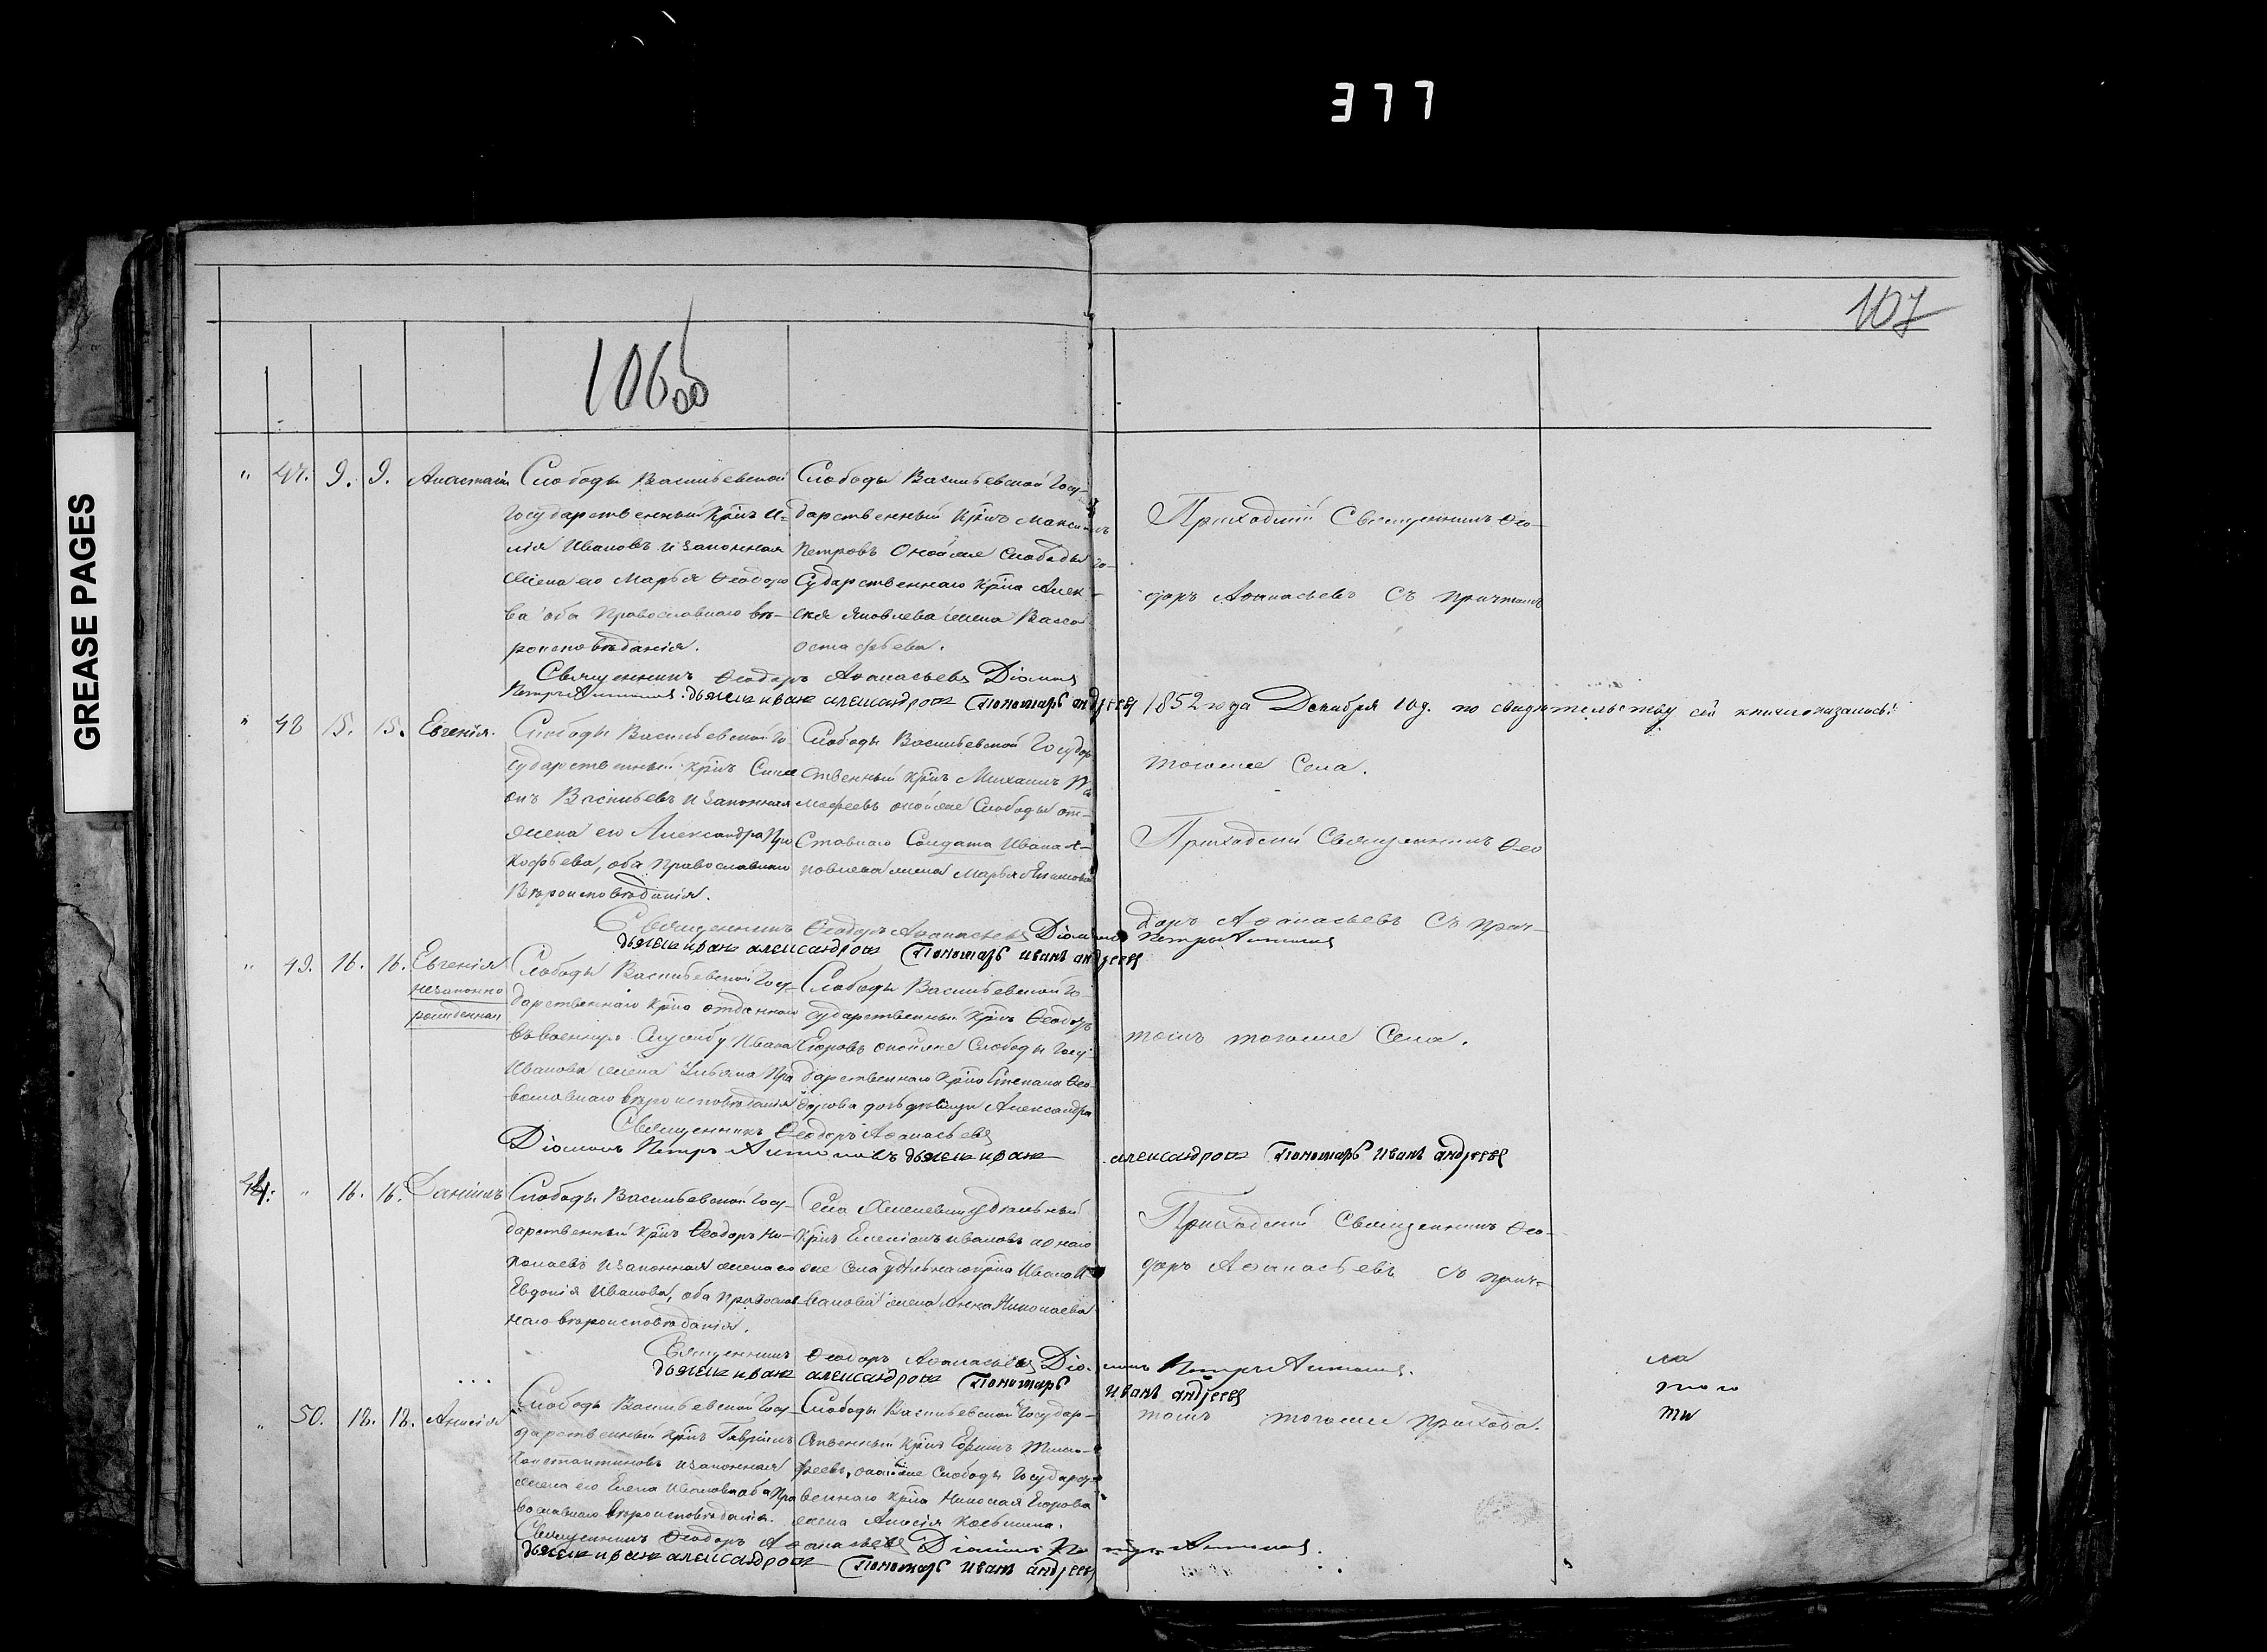 377
GREASE PAGES
107
106 об
" 47. 9. 9. Анастасія
Слободы Васильевской
Государственный Кр͠нъ И-
лія Ивановъ и законная
жена его Марья Ѳеодоро
ва оба Православнаго вѣ-
роисповѣданія.
Слободы Васильевской Госу-
дарственный Кр͠нъ Максимъ
Петровъ оной же Слободы Го-
сударственнаго Кр͠на Алек-
сѣя Яковлева жена Васса
Остафьева.
Приходскій Священникъ Ѳео-
доръ Аѳанасьевъ съ причтомъ
Священникъ Ѳеодоръ Аѳанасьевъ Діаконъ
Петръ Антоновъ. дьячекъ иванъ александровъ Пономарь андреевъ
1852 года Декабря 10 д. по свидѣтельству сей книги оказалось:
" 48 15. 15. Евгенія.
Слободы Васильевской Го-
сударственный Кр͠нъ Симе
онъ Васильевъ и законная
жена его Александра Про
кофьева, оба Православнаго
Вѣроисповѣданія.
Слободы Васильевской Государ
ственный Кр͠нъ Михаилъ Ма
мофеевъ оной же Слободы от-
ставнаго Солдата Ивана Я-
ковлева жена Марья Екимова
тогоже Села.
Приходскій Священникъ Ѳео
доръ Аѳанасьевъ съ прич-
Священникъ Ѳеодоръ Аѳанасьевъ Діаконъ Петръ Антоновъ
дьячекъ иванъ александровъ Пономарь иванъ андреевъ
" 49. 16. 16. Евгенія
незаконно
рожденная
Слободы Васильевской Госу-
дарственнаго Кр͠на отданнаго
въ военную Службу Ивана
Иванова жена Ульяна Пра
вославнаго вѣроисповѣданія
Слободы Васильевской Го-
сударственный Кр͠нъ Ѳеодоръ
Егоровъ оной же Слободы Госу-
дарственнаго Кр͠на Степана Ѳео-
дорова дочь дѣвица Александра
томъ тогоже Села.
Священникъ Ѳеодоръ Аѳанасьевъ
Діаконъ Петръ Антоновъ дьячекъ иванъ александровъ Пономарь иванъ андреевъ
44. " 16. 16. Даніилъ
Слободы Васильевской Госу-
дарственный Кр͠нъ Ѳеодоръ Ни-
колаевъ и законная жена его
Евдокія Иванова, оба Православ-
наго вѣроисповѣданія.
Села удѣльный
Кр͠нъ Емеліанъ Ивановъ а онаго
же Села удѣльнаго кр͠на Ивана И
ванова жена Анна Николаева
Приходскій Священникъ Ѳео-
доръ Аѳанасьевъ съ прич-
Священникъ Ѳеодоръ Аѳанасьевъ Діаконъ Петръ Антоновъ.
дьячекъ иванъ александровъ Пономарь иванъ андреевъ
ла
того
ти
" 50. 18. 18. Анисія
Слободы Васильевской Госу-
дарственный Кр͠нъ Гавріилъ
Константиновъ и законная
жена его Елена Иванова оба Пра
вославнаго вѣроисповѣданія.
Слободы Васильевской Государ-
ственный Кр͠нъ Ефимъ Тимо-
феевъ, оной же Слободы Государст
веннаго Кр͠на Николая Егорова
жена Анисія Косьмина.
томъ тогоже прихода.
Священникъ Ѳеодоръ Аѳанасьевъ Діаконъ Петръ Антоновъ.
дьячекъ иванъ александровъ Пономарь иванъ андреевъ